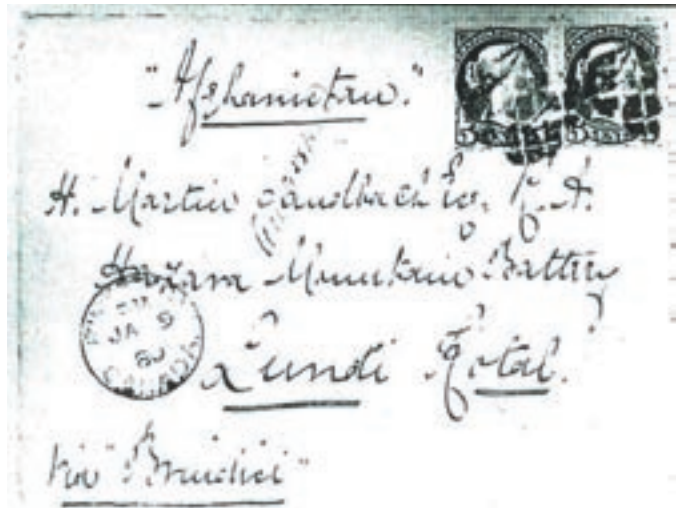 "Afghanistan."
H. Martin Sandbach Esq. R. A.
Hazara Mountain Battery
Lundi Kotal.
Via "Brindisi"
JA 9
80
CANADA
5 5